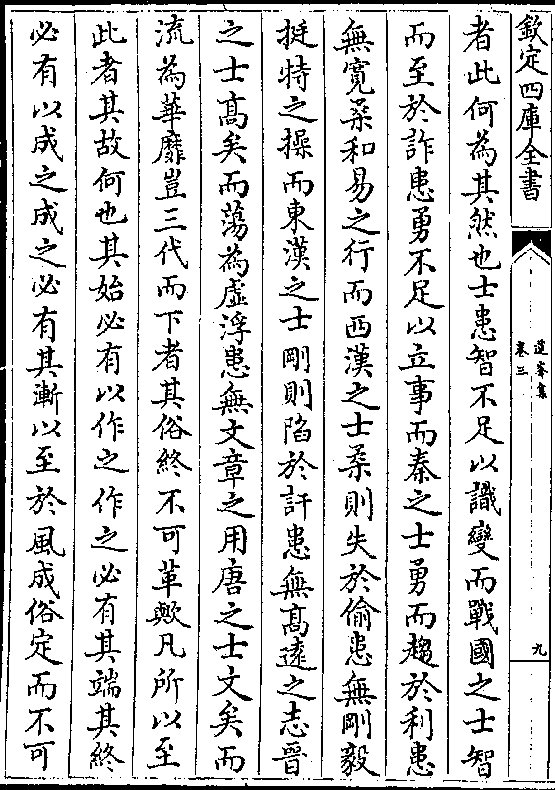 欽定四庫全書
卷三
九
者此何為其然也士患智不足以識變而戰國之士智
而至於詐患勇不足以立事而秦之士勇而趨於利患
無寬柔和易之行而西漢之士柔則失於偷患無剛毅
挺特之操而東漢之士剛則陷於訐患無髙遠之志晉
之士髙矣而蕩為虚浮患無文章之用唐之士文矣而
流為華靡豈三代而下者其俗終不可革歟凡所以至
此者其故何也其始必有以作之作之必有其端其終
必有以成之成之必有其漸以至於風成俗定而不可